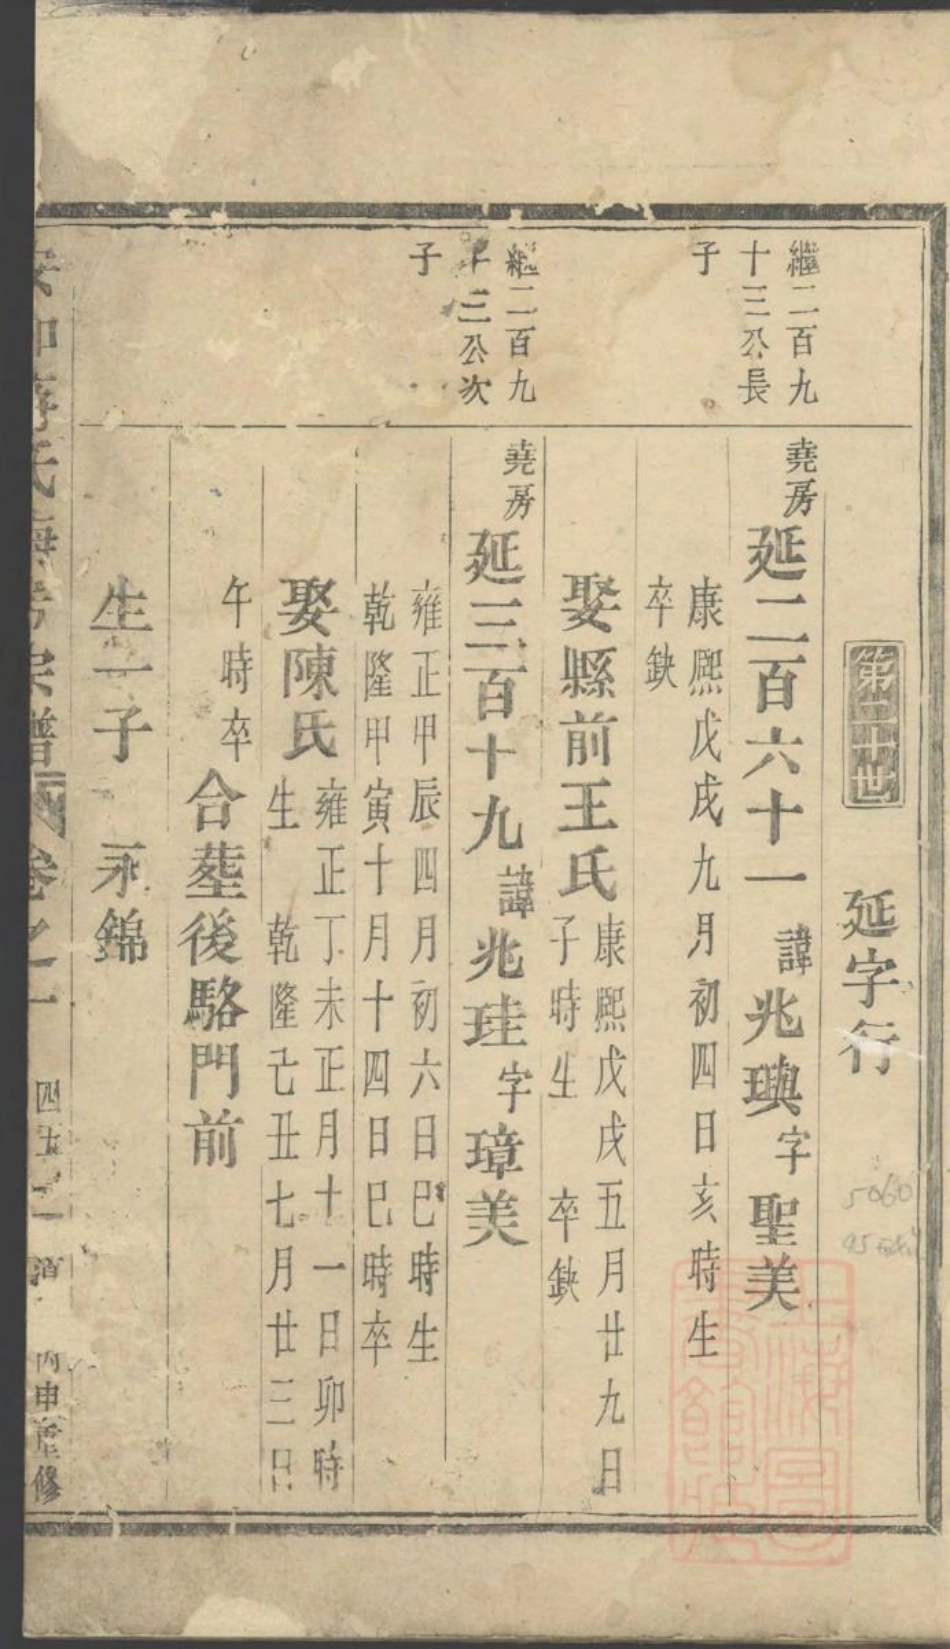 第二十世 延字行
繼二百九
十三公長
子
堯房 延二百六十一 諱兆璵字聖美
康熙戊戌九月初四日亥時生
卒缺
娶縣前王氏 康熙戊戌五月廿九日
子時生 卒缺
繼二百九
十三公次
子
堯房 延三百十九 諱兆珪字璋美
雍正甲辰四月初六日巳時生
乾隆甲寅十月十四日巳時卒
娶陳氏 雍正丁未正月十一日卯時
生 乾隆乙丑七月廿三日
午時卒 合塟後駱門前
生一子 永錦
氏 宗譜 卷之一 四 二 丙申重修
5060